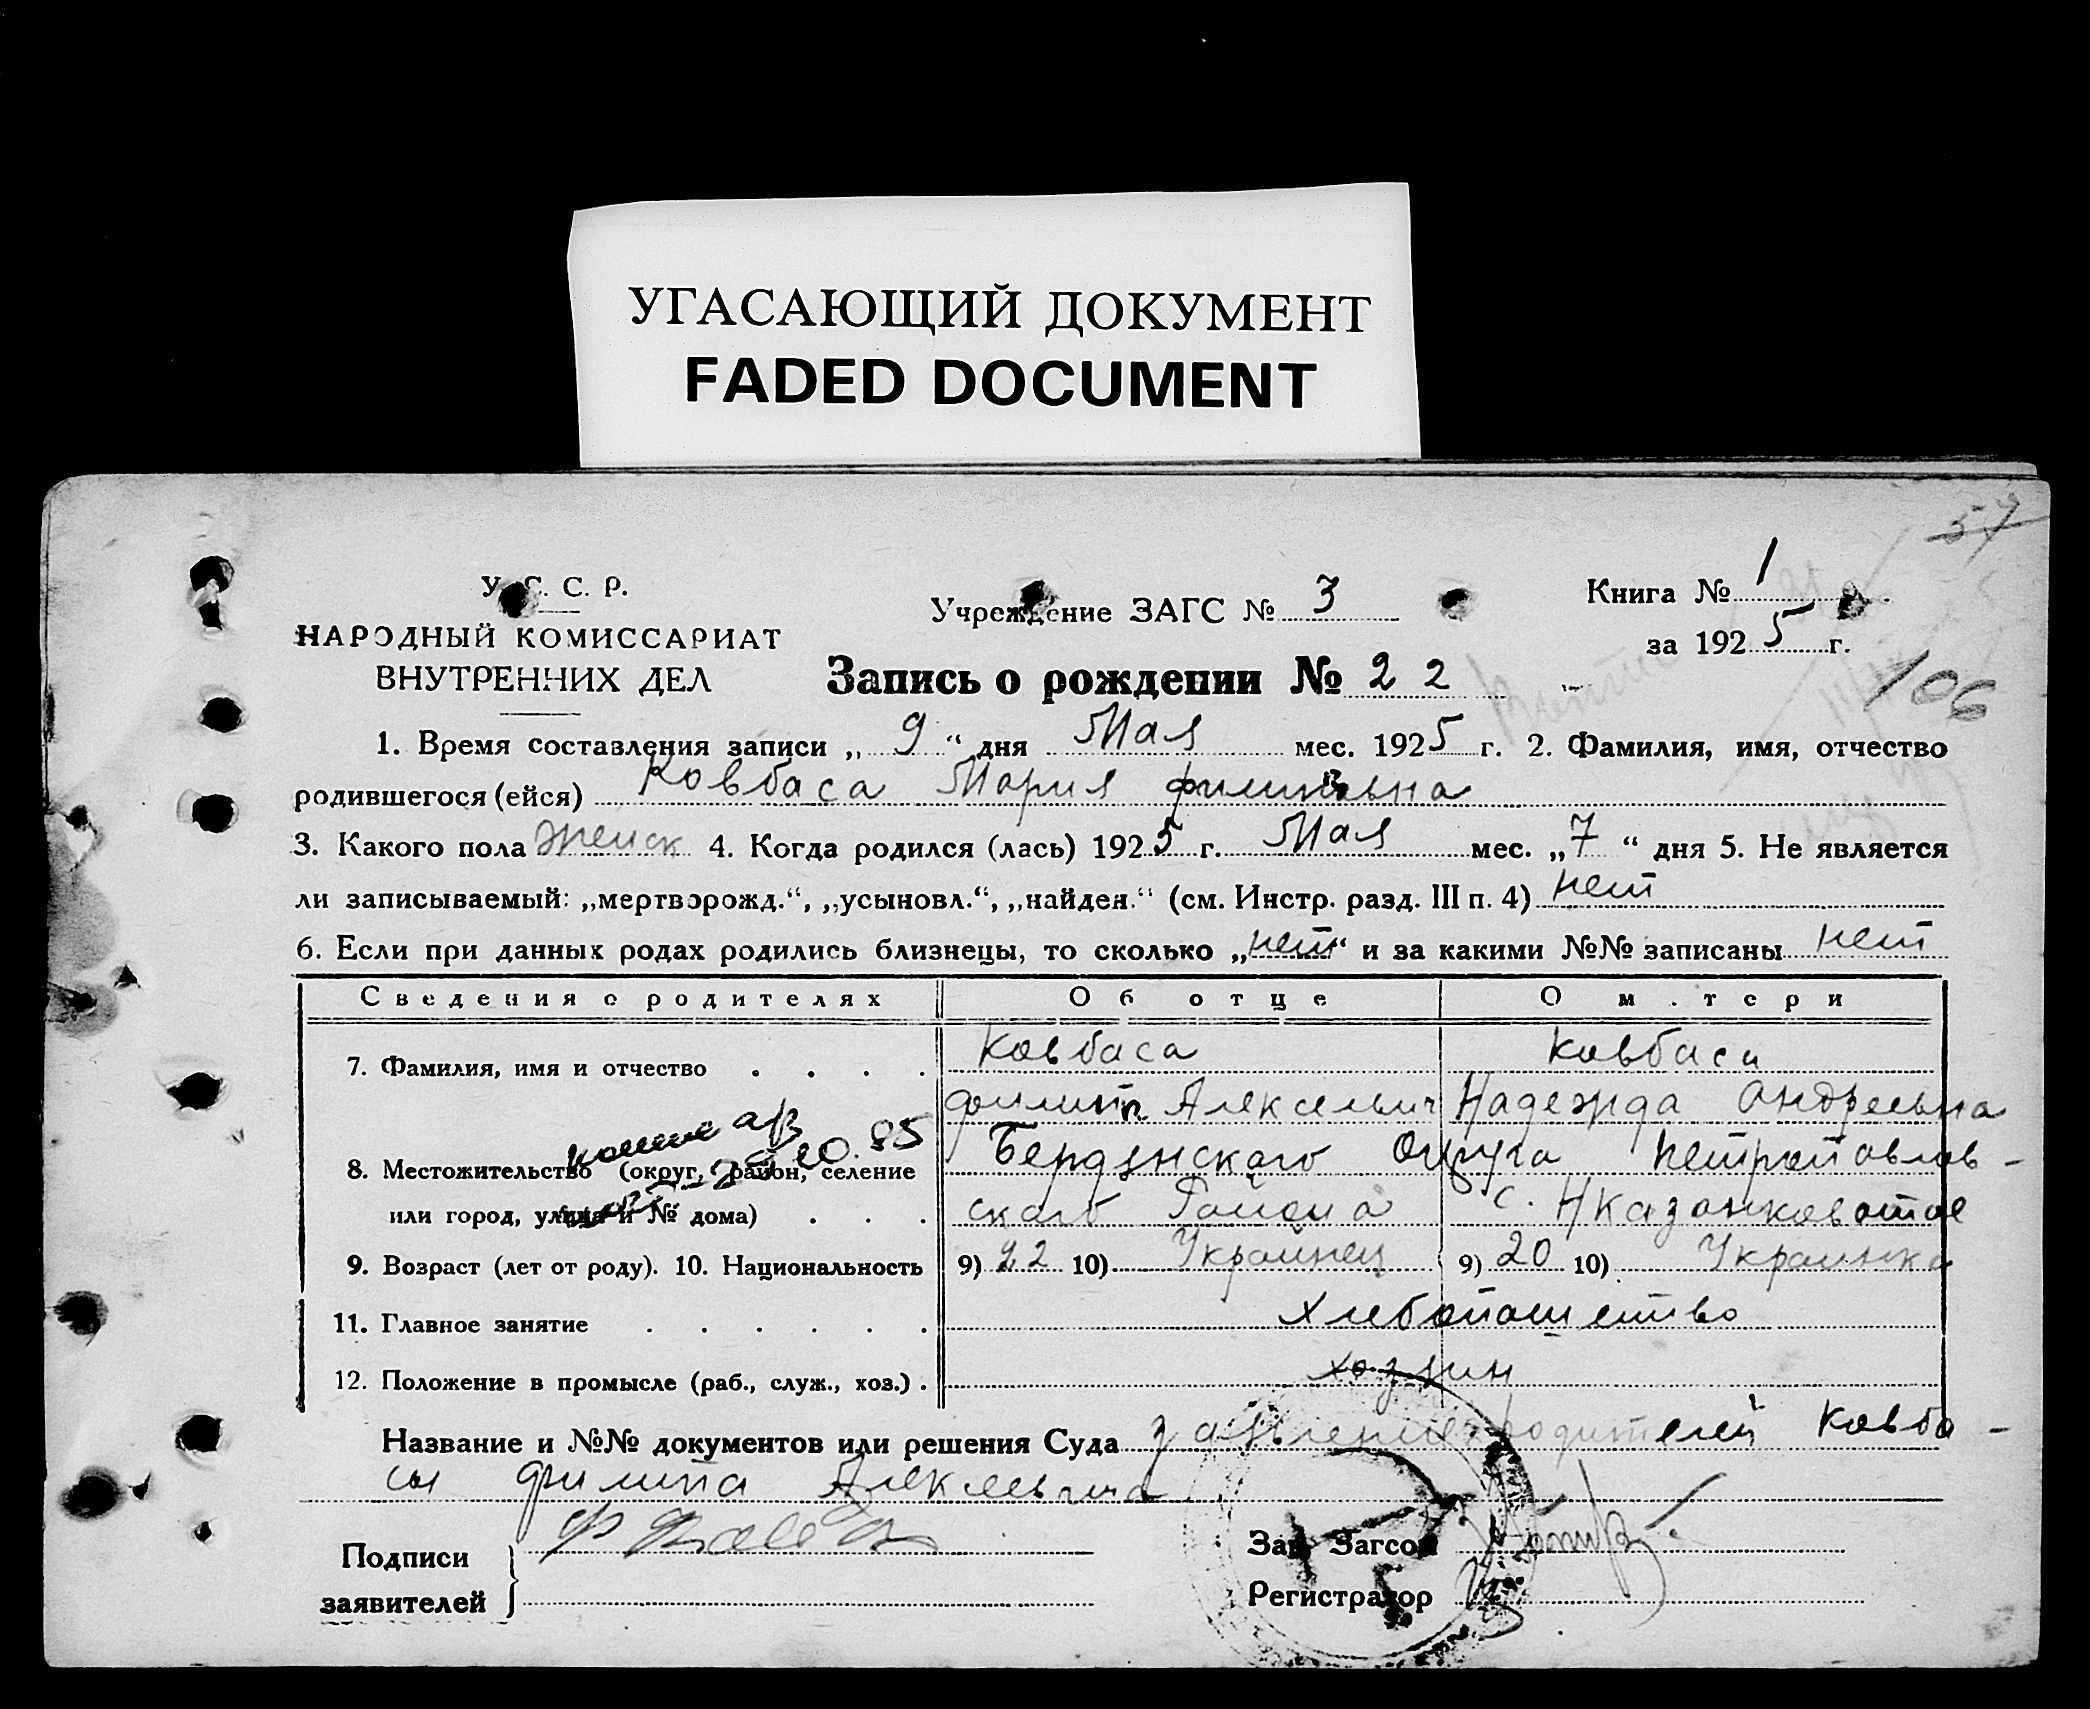 УГАСАЮЩИЙ ДОКУМЕНТ
FADED DOCUMENT
57
У. С. С. Р.
НАРОДНЫЙ КОМИССАРИАТ
ВНУТРЕННИХ ДЕЛ
Учреждение ЗАГС № 3
Книга № 1
за 1925 г.
106
Запись о рождении № 22
1. Время составления записи „9“ дня Мая мес. 1925 г. 2. Фамилия, имя, отчество
родившегося (ейся) Ковбаса Мария Филиповна
3. Какого пола женск 4. Когда родился (лась) 1925 г. Мая мес. „7“ дня 5. Не является
ли записываемый: „мертворожд.“, „усыновл.“, „найден.“ (см. Инстр. разд. III п. 4) нет
6. Если при данных родах родились близнецы, то сколько „нет“ и за какими №№ записаны нет
Сведения о родителях Об отце О м.тери
7. Фамилия, имя и отчество Ковбаса Ковбаса
Филипп Алексеевич Надежда Андреевна
20.85
8. Местожительство (округ, район, селение Бердянского Округа Петропавлов-
или город, улица и № дома) ского Района с.
9. Возраст (лет от роду). 10. Национальность 9) 22 10) Украинец 9) 20 10) Украинка
11. Главное занятие Хлебопашество
12. Положение в промысле (раб., служ., хоз.) хозяин
Название и №№ документов или решения Суда заявление родителей Ковба-
сы Филипа Алексеевича
Подписи
заявителей
Зав Загсом
Регистратор